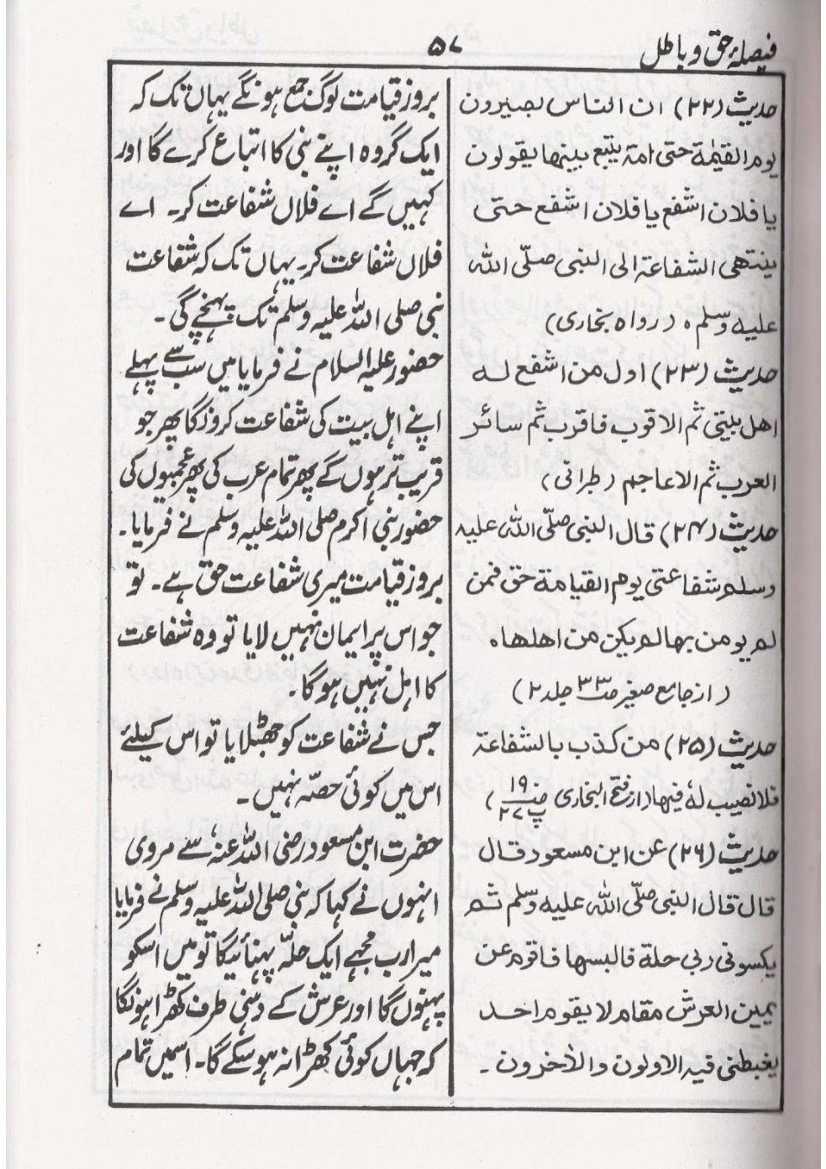 فیصلۂ حق و باطل
۵۷
حدیث (۲۲) ان الناس یصیرون
یوم القیٰمۃ حتی امۃ یتبع بینھا یقولون
یا فلان اشفع یا فلان اشفع حتی
ینتھی الشفاعۃ الی النبی صلّی اللہ
علیہ وسلم۔ (رواہ بخاری)
حدیث (۲۳) اول من اشفع لہ
اھل بیتی ثم الاقوب فاقرب ثم سائر
العرب ثم الاعاجم (طبرانی)
حدیث (۲۴) قال النبی صلّی اللہ علیہ
وسلم شفاعتی یوم القیامۃ حق فمن
لم یومن بھا لم یکن من اھلھا۔
(از جامع صغیر صـ۳۳ جلد ۲)
حدیث (۲۵) من کذب بالشفاعۃ
فلا نصیب لہٗ فیھا (از فتح البخاری صـ۱۹ پـ۲۷)
حدیث (۲۶) عن ابن مسعود قال
قال قال النبی صلّی اللہ علیہ وسلم ثم
یکسونی ربی حلۃ فالبسھا فاقوم عن
یمین العرش مقام لا یقوم احد
یغبطنی فیہ الاولون والاٰخرون۔
بروز قیامت لوگ جمع ہونگے یہاں تک کہ
ایک گروہ اپنے نبی کا اتباع کرے گا اور
کہیں گے اے فلاں شفاعت کر۔ اے
فلاں شفاعت کر۔ یہاں تک کہ شفاعت
نبی صلی اللہ علیہ وسلم تک پہنچے گی۔
حضور علیہ السلام نے فرمایا میں سب سے پہلے
اپنے اہل بیت کی شفاعت کروں گا پھر جو
قریب تر ہوں گے پھر تمام عرب کی پھر عجمیوں کی
حضور نبی اکرم صلی اللہ علیہ وسلم نے فرمایا۔
بروز قیامت میری شفاعت حق ہے۔ تو
جو اس پر ایمان نہیں لایا تو وہ شفاعت
کا اہل نہیں ہوگا۔
جس نے شفاعت کو جھٹلایا تو اس کیلئے
اس میں کوئی حصّہ نہیں۔
حضرت ابن مسعود رضی اللہ عنہ سے مروی
انہوں نے کہا کہ نبی صلی اللہ علیہ وسلم نے فرمایا
میرا رب مجھے ایک حلّہ پہنائیگا تو میں اسکو
پہنوں گا اور عرش کے دہنی طرف کھڑا ہونگا
کہ جہاں کوئی کھڑا نہ ہوسکے گا۔ اسمیں تمام